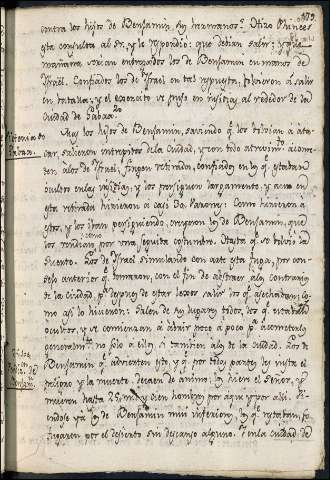 179.
contra los hijos de Benjamin sus hermanos? Hizo Phinees
esta consulta al Sr, y le respondió: que debian salir; y que
mañana serian entregados los de Benjamin en manos de
Israel. Confiados los de Israel en tal respuesta, bolvieron á salir
en batalla, y el exercito se puso en insidias al rededor de la
Ciudad de Gabaa.
Victoria de
Gabaa.
Mas los hijos de Benjamin, sabiendo q.e los bolvian á ata-
car, salieron intrepitos de la Ciudad, y con todo
a los de Israel, fingen retirada, confiados en los q.e estaban
ocultos en las insidias; y los persiguen largamente, y aun en
esta retirada hirieron á casi 30. Varones. Como hirieron á
estos, y los iban persiguiendo, creyeron los de Benjamin, que
como
los rendian por una sequita costumbre. Hasta q.e se bolvió la
suerte. Los de Israel simulando con arte esta fuga, por con-
sejo anterior q.e tomaron, con el fin de abstraer a los contrarios
de la Ciudad, p.a despues de estar lexos salir los q.e asechaban; co-
mo asi lo hicieron: Salen de sus lugares todos, los q.e estaban
ocultos, y se comienzan á abrir poco á poco p.a acometerlos
generalm.te no solo á ellos, si tambien a los de la Ciudad. Los de
Benjamin q.e advierten esto, y q.e por todas partes les insta el
peligro y la muerte, decaen de animo; los hiere el Señor, y
mueren hasta 25. mil y cien hombres por aqui y por alli. Vi-
endose ya los de Benjamin mui inferiores, los q.e restaban, se
fugaron por el desierto sin descanso alguno. Y en la Ciudad de